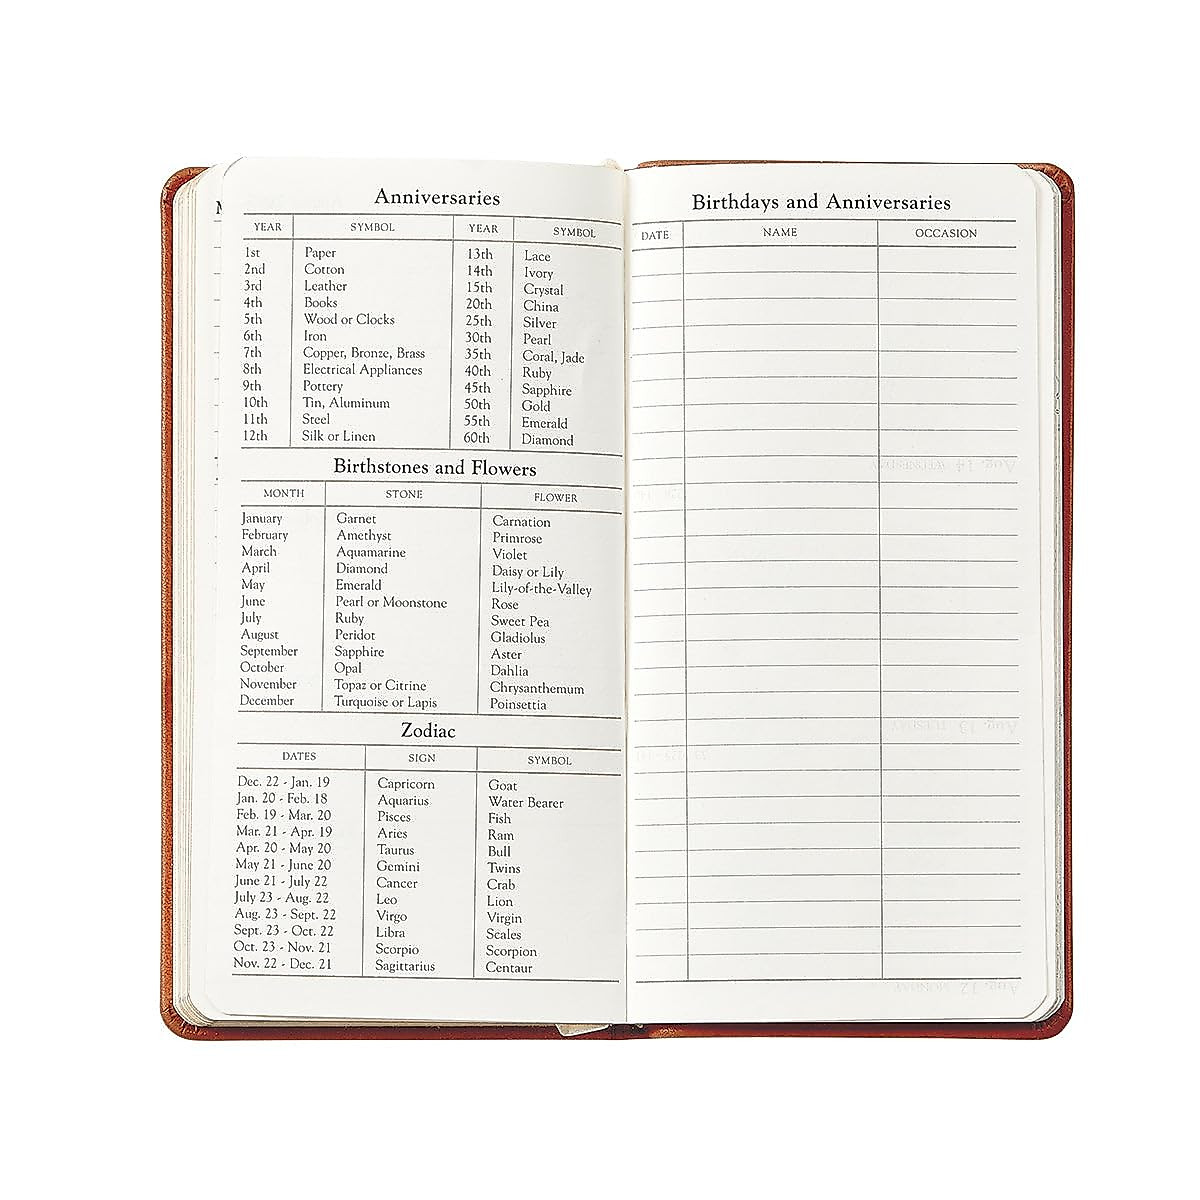 Anniversaries
YEAR SYMBOL YEAR SYMBOL
1st Paper 13th Lace
2nd Cotton 14th Ivory
3rd Leather 15th Crystal
4th Books 20th China
5th Wood or Clocks 25th Silver
6th Iron 30th Pearl
7th Copper, Bronze, Brass 35th Coral, Jade
8th Electrical Appliances 40th Ruby
9th Pottery 45th Sapphire
10th Tin, Aluminum 50th Gold
11th Steel 55th Emerald
12th Silk or Linen 60th Diamond
Birthstones and Flowers
MONTH STONE FLOWER
January Garnet Carnation
February Amethyst Primrose
March Aquamarine Violet
April Diamond Daisy or Lily
May Emerald Lily-of-the-Valley
June Pearl or Moonstone Rose
July Ruby Sweet Pea
August Peridot Gladiolus
September Sapphire Aster
October Opal Dahlia
November Topaz or Citrine Chrysanthemum
December Turquoise or Lapis Poinsettia
Zodiac
DATES SIGN SYMBOL
Dec. 22 - Jan. 19 Capricorn Goat
Jan. 20 - Feb. 18 Aquarius Water Bearer
Feb. 19 - Mar. 20 Pisces Fish
Mar. 21 - Apr. 19 Aries Ram
Apr. 20 - May 20 Taurus Bull
May 21 - June 20 Gemini Twins
June 21 - July 22 Cancer Crab
July 23 - Aug. 22 Leo Lion
Aug. 23 - Sept. 22 Virgo Virgin
Sept. 23 - Oct. 22 Libra Scales
Oct. 23 - Nov. 21 Scorpio Scorpion
Nov. 22 - Dec. 21 Sagittarius Centaur
Birthdays and Anniversaries
DATE NAME OCCASION
Aug. 14 WEDNESDAY
Aug. 13 TUESDAY
Aug. 12 MONDAY